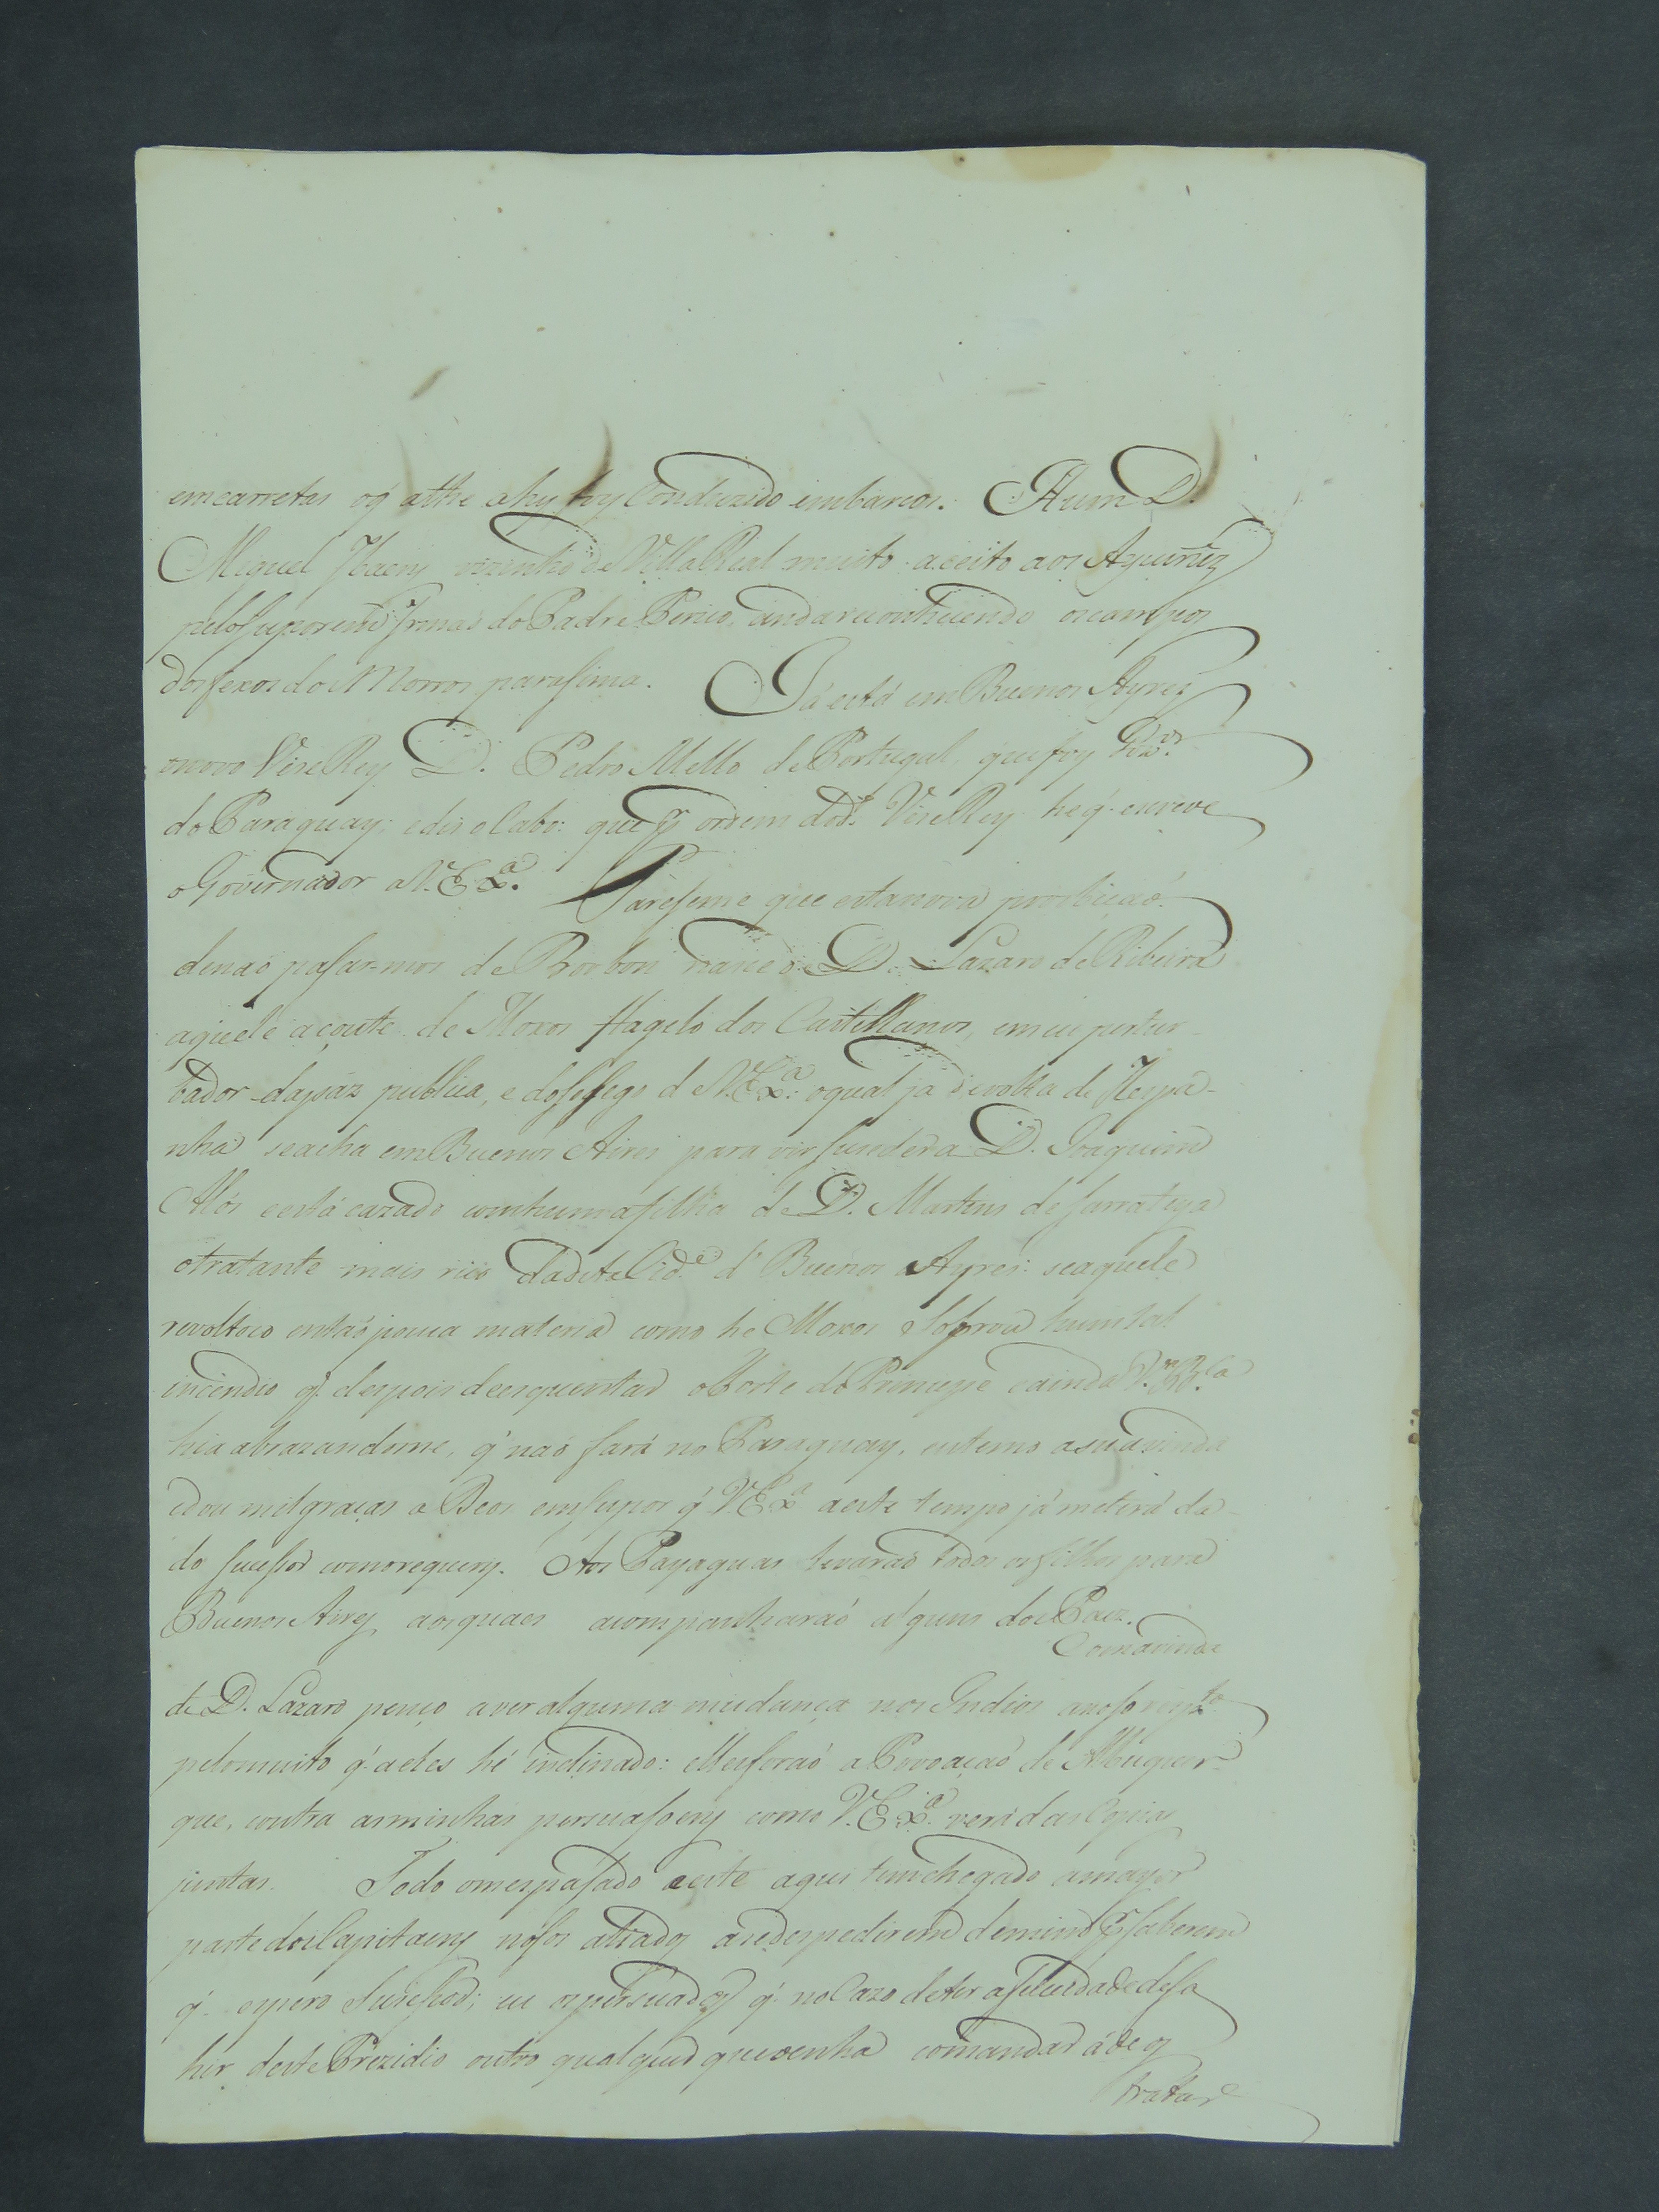 emcarretas oq̃ athe ahy foy Conduzido embarcos. Hum D.
Miguel Ibaeny vizinho de Villa Real muito aceito aos
pelo suporem Irmaõ do Padre Perico, anda reconhecendo oscampos
dosfexos dos Morros parasima. Já está em Buenos Ayres
onovo Vise Rey D. Pedro Mello de Portugal, que foy Gov.or
do Paraguay; e dis o Cabo: que p.r ordem dod.o Vise Rey he q̃ escreve
o Governador a V. Ex.a Paresseme que estanova proibiçaõ
denaõ pasar-mos de Borbon nace d D. Lazaro de Ribeira
aquele açoute de Moxos flagelo dos Castelhanos, emeu pertur-
bador dapáz publica, e dosocego d V. Ex.a oqual já devolta de Hespa-
nha seacha emBuenos Aires para vir suceder a D. Joaquim
Alós e está cazado comhumafilha de D. Martins de Sarratiga
otratante mais rico dadita Cid.e d' Buenos Ayres: seaquele
revoltoco entaõ pouca materia como he Moxos asoprou hum tal
incendio q̃ despois deesquentar oForte do Principe eainda
hia abrazandome, q̃ naõ fará no Paraguay, eutemo asuavinda
edou milgraças a Deos emsupor q̃ V. Ex.a aeste tempo já meterá da-
do sucessor comorequery. Aos Payaguas levaraõ todos osfilhos para
Buenos Ayres aosquaes acompanharaõ alguns dos Paez.
Comavinda
de D. Lazaro penço aver alguma mudança nos Indios anoso resp.to
pelomuito q̃ aeles hé inclinado: elles foraõ a Povoaçaõ de Albuquer-
que, contra asminhas persuasoeny como V. Ex.a verá das Copias
juntas. Todo omespasado eeste aqui temchegado amayor
parte dos Capitaeny nosos aliados asedespedirem demim p.r saberem
q̃ espero Sucessor; eu ospersuado q̃ no Cazo deter afelicidade desa
hir deste Prezidio outro qualquer quevenha comandar áde os
tratar